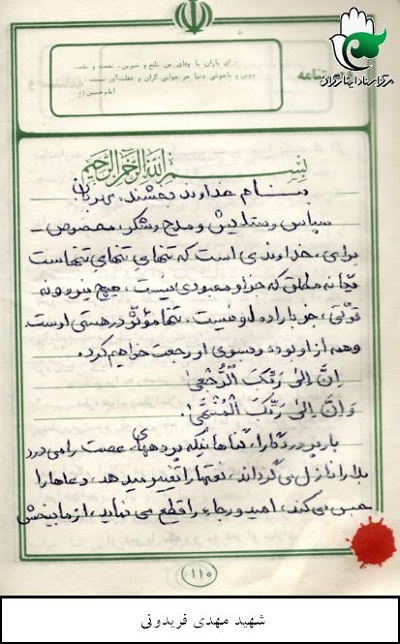 وصیتنامه
مرکز اسناد ایثارگران
ای یاران با وفای من تلخ و شیرین، نعمت و نقمت
و ناخوشی دنیا هر خوابی گران و غفلت‌آور است
امام حسین (ع)
بِسْمِ اللهِ الرَّحْمٰنِ الرَّحِیمِ
بنام خداوند بخشنده مهربان
سپاس و ستایش و مدح و شکر مخصوص
برای خداوندی است که تنهای تنهای تنهاست
یگانه مطلق که جز او معبودی نیست، هیچ نیرو و نه
قوّتی، جز باراده او نیست، تنها مؤثر در هستی اوست.
و همه از او بوده و بسوی او رجعت خواهیم کرد.
اِنَّ اِلیٰ رَبِّکَ الرُّجْعیٰ
وَ اِنَّ اِلیٰ رَبِّکَ الْمُنْتَهیٰ.
بار پروردگارا، گناهانیکه پرده‌های عصمت را می‌درد
بلا را نازل می‌گرداند، نعمتها را تغییر میدهد، دعاها را
حبس می‌کند، امید و رجاء را قطع می‌نماید، از ما ببخش
۱۱۰
شهید مهدی فریدونی